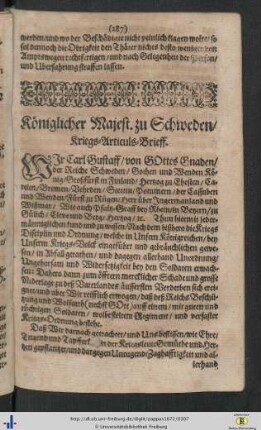 (287)
werden und wo der Beschädigte nicht peinlich klagen wolte / so
soll dannoch die Obrigkeit den Thäter nichts desto weniger von
Ampts wegen rechtfertigen / und nach Gelegenheit der Person /
und Uberfahrung straffen lassen.
Königlicher Majest. zu Schweden /
Kriegs-Articuls-Brieff.
WIr Carl Gustaff / von GOttes Gnaden /
der Reiche Schweden / Gothen und Wenden Köng
nig / Großfürst in Finland / Hertzog zu Ehesten / Ca-
relen / Bremen / Vehrden / Stettin / Pommern / der Cassuben
und Wenden / Fürst zu Rügen / Herr über Ingermanland und
Wißmar / Wie auch Pfaltz-Graff bey Rhein in Beyern / zu
Gülich / Cleve und Berg / Hertzog / etc. Thun hiermit jeder
männiglichen kund und zu wissen / Nach dem bißhero die Kriegs
Disciplin und Ordnung / welche in Unsern Königreichen / bey
Unserm Kriegs-Volck eingeführet und gebräuchlichen gewe-
sen / in Abfall gerathen / und dagegen allerhand Unordnung /
Ungehorsam und Widersetzigkeit bey den Soldaten erwach-
sen: Dahero dann zum öfftern mercklicher Schade und grosse
Niderlage zu deß Vaterlandes äussersten Verderben sich er-
eignet / und aber Wir reifflich erwogen / daß deß Reichs Beschü-
tzung und Wolfarth (nechst GOtt) auff einem / mit guten und
redlichen Soldaten / wolbestelltem Regiment / und verfaster
Kriegs-Ordnung bestehe.
Daß Wir darnach getrachtet / und Uns beflissen / wie Ehre /
Tugend und Tapffer in der Kriegsleute Gemüthe und Her-
tzen gepflantzet / und dargegen Untugend / Zaghafftigkeit und al-
lerhand
http://dl.ub.uni-freiburg.de/diglit/pappus1672/0307
© Universitätsbibliothek Freiburg